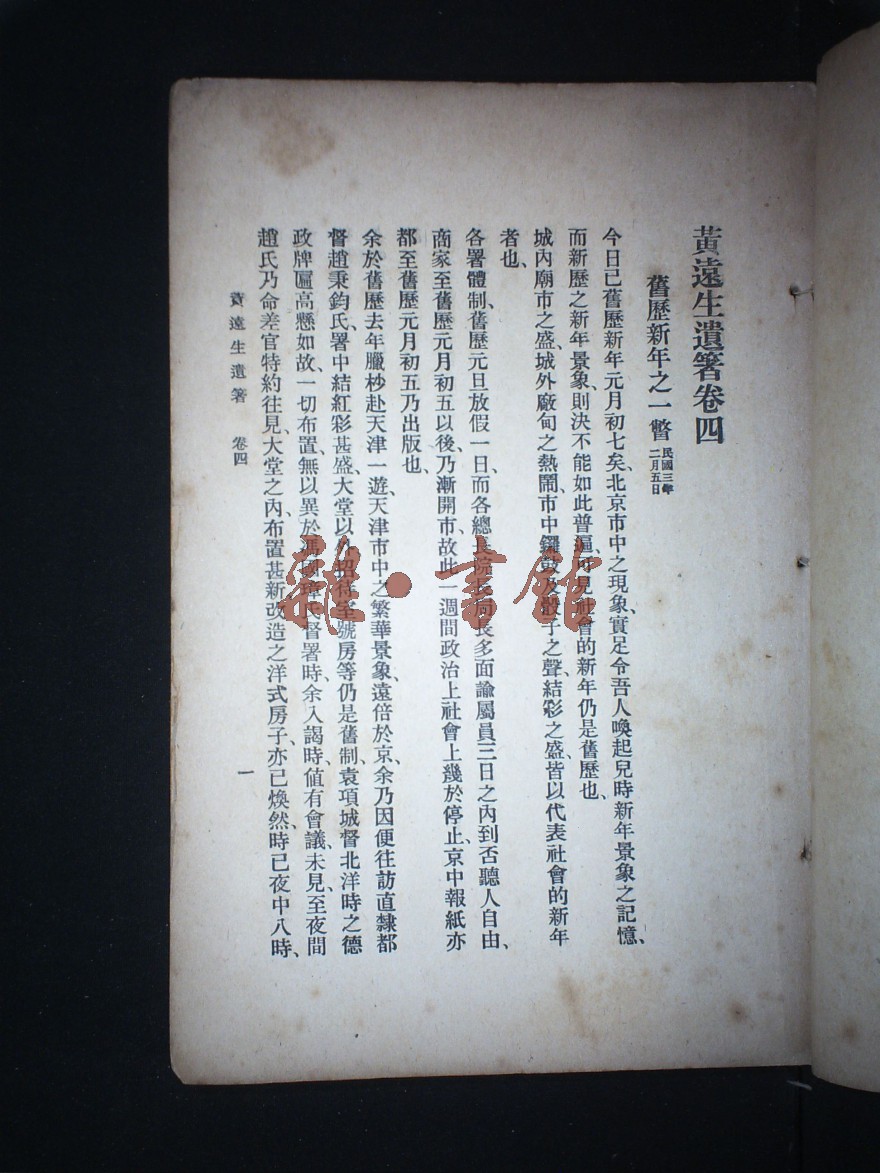 黃遠生遺著卷四
舊歷新年之一瞥 民國三年二月五日
今日已舊歷新年元月初七矣、北京市中之現象、實足令吾人喚起兒時新年景象之記憶、
而新歷之新年景象、則決不能如此普遍、可見社會的新年仍是舊歷也、
城內廟市之盛、城外廠甸之熱鬧、市中鑼鼓及骰子之聲、結彩之盛、皆以代表社會的新年
者也、
各署體制、舊歷元旦放假一日、而各總長院長局長多面諭屬員、三日之內、到否聽人自由、
商家至舊歷元月初五以後、乃漸開市、故此一週間政治上社會上幾於停止、京中報紙亦
都至舊歷元月初五乃出版也、
余於舊歷去年臘杪赴天津一遊、天津市中之繁華景象、遠倍於京、余乃因便往訪直隸都
督趙秉鈞氏、署中結紅彩甚盛、大堂以外、招待室號房等仍是舊制、袁項城督北洋時之德
政牌匾高懸如故、一切布置、無以異於馮國璋氏督署時、余入謁時、値有會議、未見、至夜間
趙氏乃命差官特約往見、大堂之內、布置甚新、改造之洋式房子、亦已煥然、時已夜中八時、
黃遠生遺著 卷四
一
雜·書館